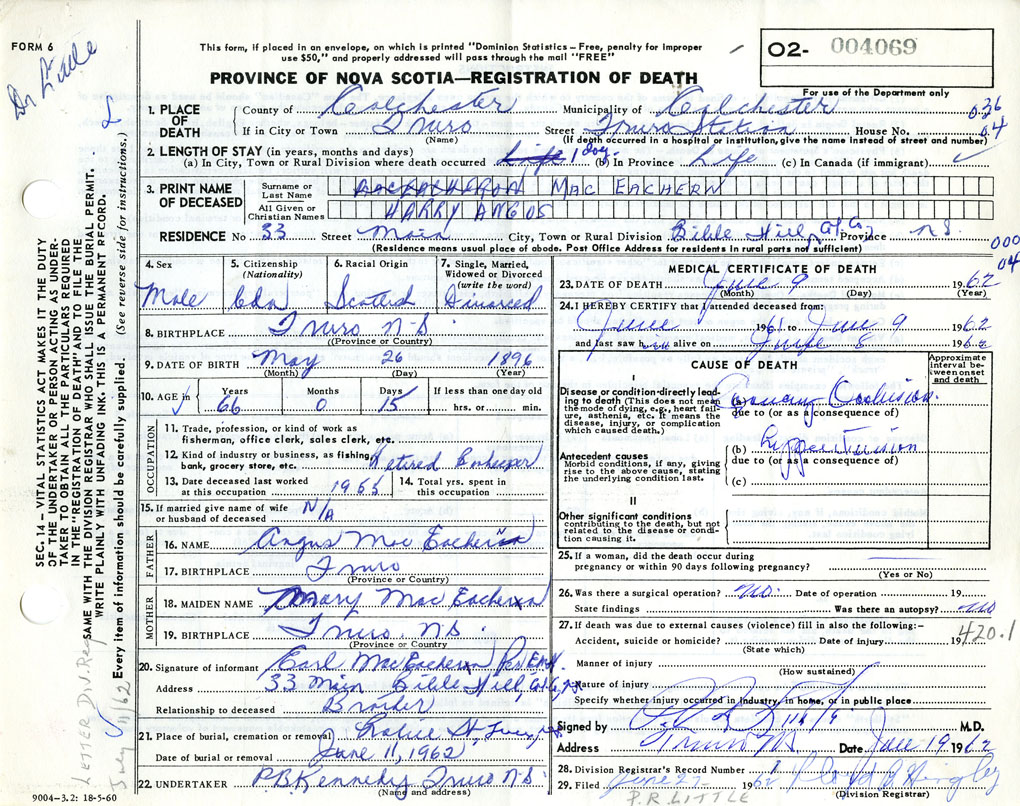 FORM 6
Dr Little
This form, if placed in an envelope, on which is printed "Dominion Statistics—Free, penalty for improper
use $50," and properly addressed will pass through the mail "FREE"
O2- 004069
For use of the Department only
PROVINCE OF NOVA SCOTIA—REGISTRATION OF DEATH
1. PLACE OF DEATH
County of Colchester Municipality of Colchester 036
If in City or Town Truro Street Truro Station House No. 04
(Name) (If death occurred in a hospital or institution, give the name instead of street and number)
2. LENGTH OF STAY (in years, months and days)
(a) In City, Town or Rural Division where death occurred Life 1 day (b) In Province Life (c) In Canada (if immigrant)
3. PRINT NAME OF DECEASED
Surname or Last Name MAC EACHERN
All Given or Christian Names HARRY ANGUS
RESIDENCE No 33 Street Main City, Town or Rural Division Bible Hill, Col. Co. Province N.S.
(Residence means usual place of abode. Post Office Address for residents in rural parts not sufficient)
000
04
4. Sex Male
5. Citizenship (Nationality) Cdn
6. Racial Origin Scottish
7. Single, Married, Widowed or Divorced (write the word) Divorced
8. BIRTHPLACE Truro N-S.
(Province or Country)
9. DATE OF BIRTH May 26 1896
(Month) (Day) (Year)
10. AGE in Years 66 Months 0 Days 15 If less than one day old hrs. or min.
OCCUPATION
11. Trade, profession, or kind of work as fisherman, office clerk, sales clerk, etc.
12. Kind of industry or business, as fishing, bank, grocery store, etc. Retired
13. Date deceased last worked at this occupation 1955
14. Total yrs. spent in this occupation
15. If married give name of wife or husband of deceased N/A
FATHER
16. NAME Angus Mac Eachern
17. BIRTHPLACE Truro
(Province or Country)
MOTHER
18. MAIDEN NAME Mary Mac Eachern
19. BIRTHPLACE Truro. N.S.
(Province or Country)
20. Signature of informant Earl MacEachern Per
Address 33 Main Bible Hill Col. Co. N.S.
Relationship to deceased Brother
21. Place of burial, cremation or removal Robie St. Truro, N.S.
Date of burial or removal June 11, 1962
22. UNDERTAKER P.B. Kennedy Truro N.S.
(Name and address)
MEDICAL CERTIFICATE OF DEATH
23. DATE OF DEATH June 9 1962
(Month) (Day) (Year)
24. I HEREBY CERTIFY that I attended deceased from:
June 1961 to June 9 1962
and last saw h alive on June 8 1962
CAUSE OF DEATH
Approximate interval between onset and death
I
Disease or condition directly leading to death (This does not mean the mode of dying, e.g., heart failure, asthenia, etc. It means the disease, injury, or complication which caused death.)
(a) Coronary Occlusion.
due to (or as a consequence of)
(b) Hypertension
Antecedent causes
Morbid conditions, if any, giving rise to the above cause, stating the underlying condition last.
due to (or as a consequence of)
(c)
II
Other significant conditions
contributing to the death, but not related to the disease or condition causing it.
25. If a woman, did the death occur during pregnancy or within 90 days following pregnancy?
(Yes or No)
26. Was there a surgical operation? No. Date of operation 19
State findings Was there an autopsy? No
27. If death was due to external causes (violence) fill in also the following:—
Accident, suicide or homicide? Date of injury 19
(State which)
420.1
Manner of injury
(How sustained)
Nature of injury
Specify whether injury occurred in industry, in home, or in public place
Signed by M.D.
Address Truro N.S. Date June 19 1962
28. Division Registrar's Record Number
29. Filed June 27 1962
(Division Registrar)
P.R. LITTLE
SEC. 14—VITAL STATISTICS ACT MAKES IT THE DUTY
OF THE UNDERTAKER OR PERSON ACTING AS UNDERTAKER TO OBTAIN ALL THE PARTICULARS REQUIRED
IN THE "REGISTRATION OF DEATH" AND TO FILE THE
SAME WITH THE DIVISION REGISTRAR WHO SHALL ISSUE THE BURIAL PERMIT.
WRITE PLAINLY WITH UNFADING INK. THIS IS A PERMANENT RECORD.
Every item of information should be carefully supplied. (See reverse side for instructions.)
LETTER DIV. Reg
July 11/62
9004-3.2: 18-5-60